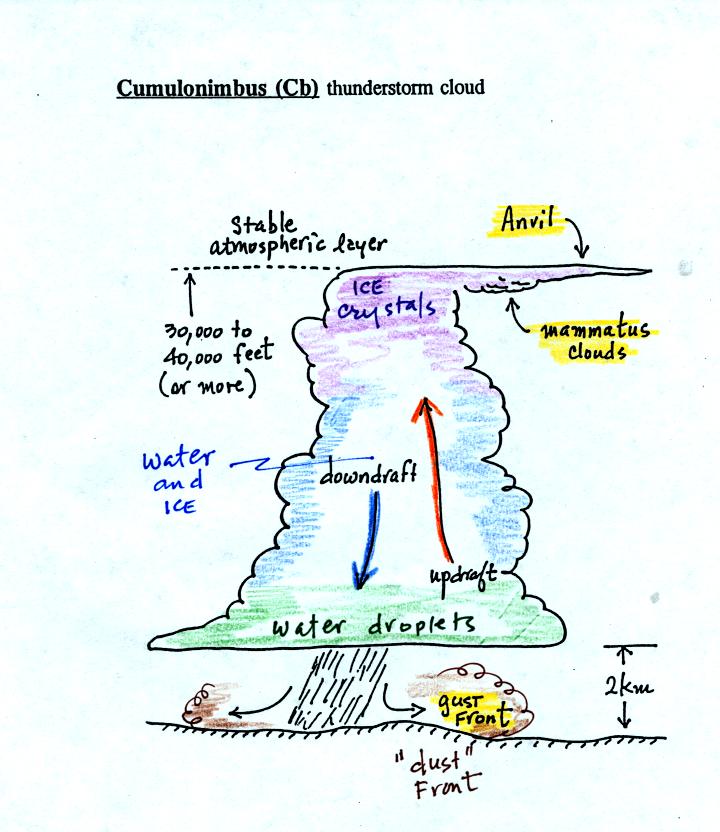 Cumulonimbus (Cb) thunderstorm cloud
Stable
atmospheric layer
Anvil
ICE
crystals
30,000 to
40,000 feet
(or more)
mammatus
clouds
water
and
ICE
downdraft
updraft
water droplets
2km
gust
Front
"dust"
Front